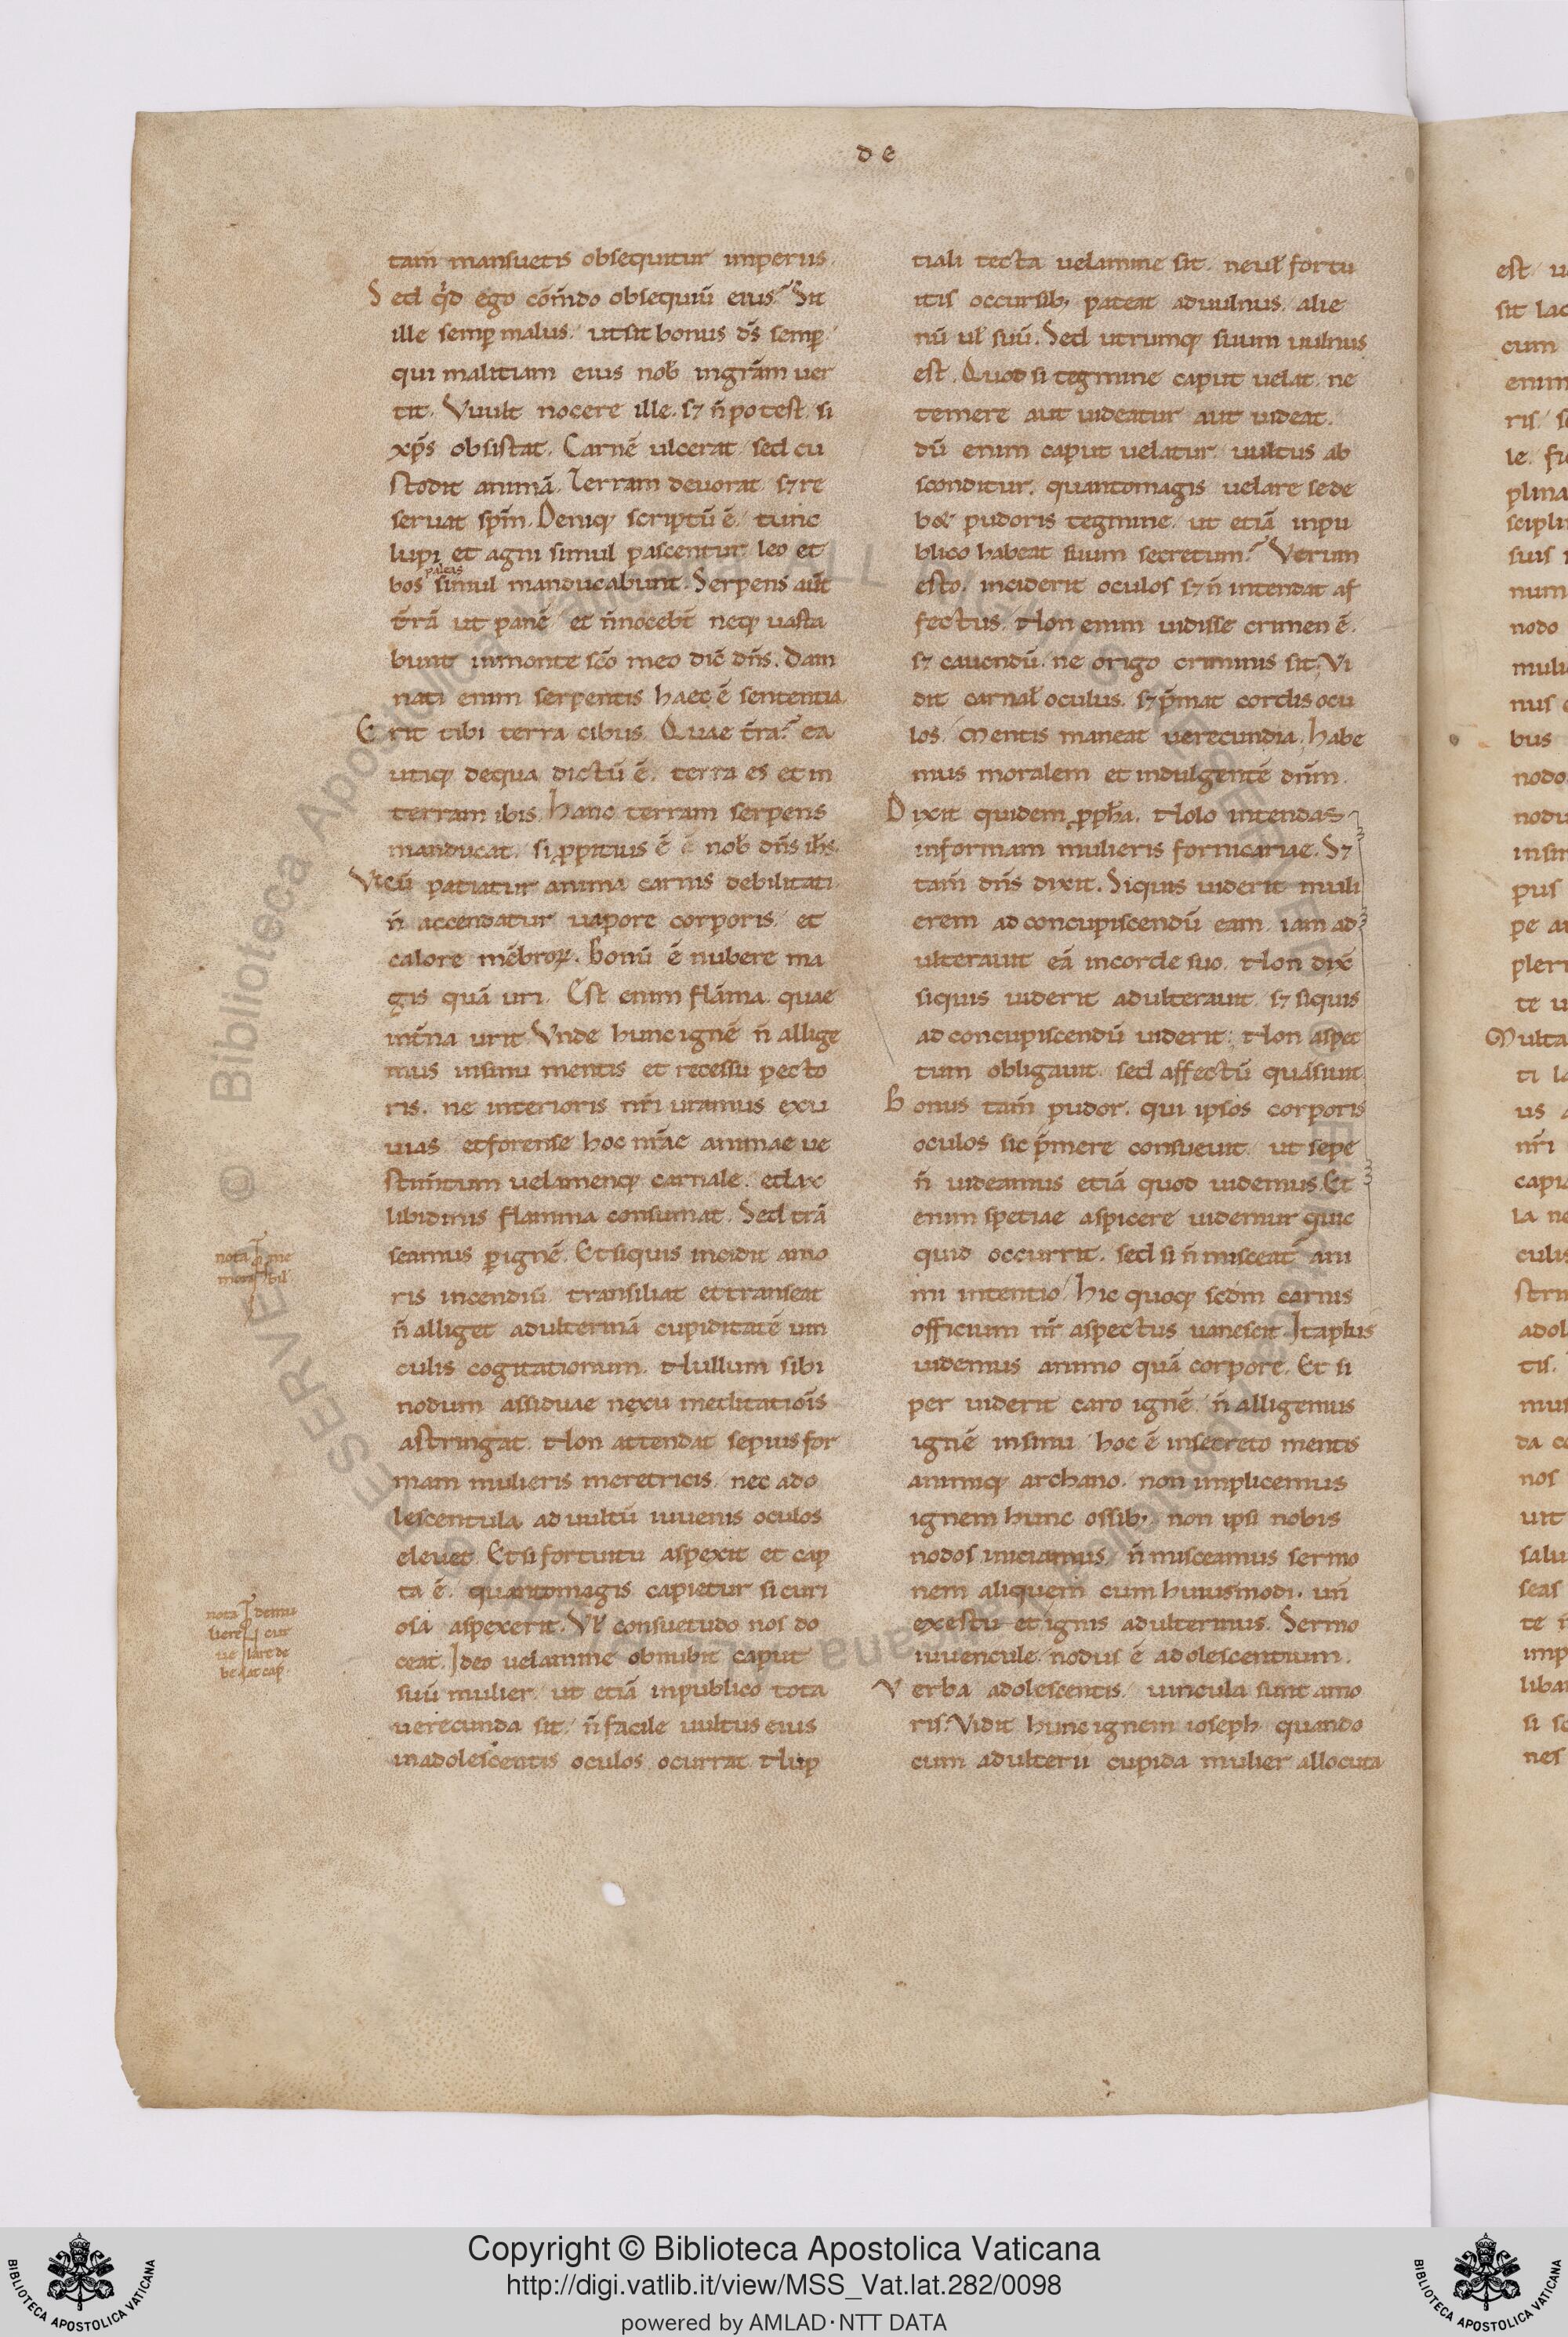 de
tam̄ mansuetis obsequitur imperiis.
Sed qd ego cōm̄do obsequiū eius? Sit
ille semp malus. utsit bonus d̄s semp.
qui malitiam eius nob ingrām uer
tit. Vuult nocere ille. s; n̄ potest. si
xp̄s obsistat. Carnē ulcerat sed cu
stodit animā. Terram deuorat. s; re
seruat sp̄m. Deniq; scriptū ē. tunc
lupi et agni simul pascentur leo et
paleas
bos simul manducabunt. Serpens aūt
t̄rā ut panē et n̄ nocebt̄ neq; uasta
bunt inmonte sc̄o meo dic̄ dn̄s. Dam
nati enim serpentis haec ē sententia.
Erit tibi terra cibus. Quae t̄ra? ea
utiq; dequa dictū ē. terra es et in
terram ibis. Hanc terram serpens
manducat. si ppitius ē nob dn̄s ih̄s.
Vt cū patiatur anima carnis debilitati.
n̄ accendatur uapore corporis. et
calore mēbroꝝ. Bonū ē nubere ma
gis quā uri. Est enim flāma. quae
int̄na urit. Vnde hunc ignē n̄ allige
mus insinu mentis et recessu pecto
ris. ne interioris nr̄i uramus exu
uias. etforense hoc nr̄ae animae ue
stim̄tum uelamenq; carnale. edax
libidinis flamma consumat. Sed trā
seamus p ignē. Et siquis incidit amo
ris incendiū. transiliat et transeat
n̄ alliget adulterinā cupiditatē uin
culis cogitationum. Nullum sibi
nodum assiduae nexu meditatiōis
astringat. Non attendat sepius for
mam mulieris meretricis. nec ado
lescentula ad uultū iuuenis oculos
eleuet. Et si fortuitu aspexit et cap
ta ē. quantomagis capietur si curi
osa aspexerit. Vl consuetudo nos do
ceat. Ideo uelamine obnubit caput
suū mulier. ut etiā inpublico tota
uerecunda sit. n̄ facile uultus eius
inadolescentis oculos ocurrat. Nup
nota me
mora bil
nota demu
liere cur
ue lare de
be at cap.
tiali tecta uelamine sit. neul fortu
itis occursib; pateat aduulnus. alie
nū ul suū. Sed utrumq; suum uulnus
est. Quod si tegmine caput uelat. ne
temere aut uideatur aut uideat.
dū enim caput uelatur. uultus ab
sconditur. quantomagis uelare sede
bet pudoris tegmine. ut etiā inpu
blico habeat suum secretum? Verum
esto. inciderit oculos s; n̄ intendat af
fectus. Non enim uidisse crimen ē.
s; cauendū. ne origo criminis sit. Vi
dit carnal oculus. s; p̄mat cordis ocu
los. Mentis maneat uerecundia. Habe
mus moralem et indulgentē dn̄m.
Dixit quidem ppha. Nolo intendas
informam mulieris fornicariae. S;
tam̄ dn̄s dixit. Siquis uiderit muli
erem ad concupiscendū eam. iam ad
ulterauit eā incorde suo. Non dix̄
siquis uiderit adulterauit. s; siquis
ad concupiscendū uiderit. Non aspec
tum obligauit. sed affectū quāsiuit
Bonus tam̄ pudor. qui ipsos corporis
oculos sic p̄mere consueuit. ut sepe
n̄ uideamus etiā quod uidemus. Et
enim spetiae aspicere uidemur quic
quid occurrit. sed si n̄ misceat ani
mi intentio. Hic quoq; scdm carnis
officium nr̄ aspectus uanescit. Ita plus
uidemus animo quā corpore. Et si
per uiderit caro ignē. n̄ alligemus
ignē insinu. hoc ē insecreto mentis
animiq; archano. non implicemus
ignem hunc ossib; non ipsi nobis
nodos iniciamus. n̄ misceamus sermo
nem aliquem cum huiusmodi. un̄
exestu et ignis adulterinus. Sermo
iuuencule. nodus ē adolescentium.
Verba adolescentis. uincula sunt amo
ris. Vidit hunc ignem ioseph quando
cum adulterii cupida mulier allocuta
Copyright © Biblioteca Apostolica Vaticana
http://digi.vatlib.it/view/MSS_Vat.lat.282/0098
powered by AMLAD·NTT DATA